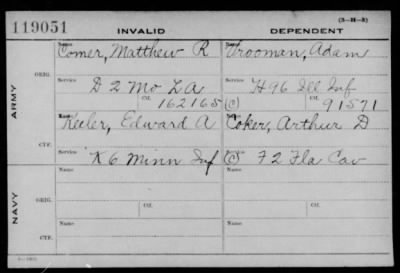 (3-H-3)
119051 INVALID DEPENDENT
Name Name
Comer, Matthew R Vrooman, Adam
ORIG.
Service Service
D 2 Mo L A H 96 Ill Inf
Ctf. 162165 (C) Ctf. 91571
ARMY
Name Name
Keeler, Edward A Coker, Arthur D
CTF.
Service Service
K 6 Minn Inf (C) F 2 Fla Cav
Name Name
ORIG.
NAVY
Ctf. Ctf.
Name Name
CTF.